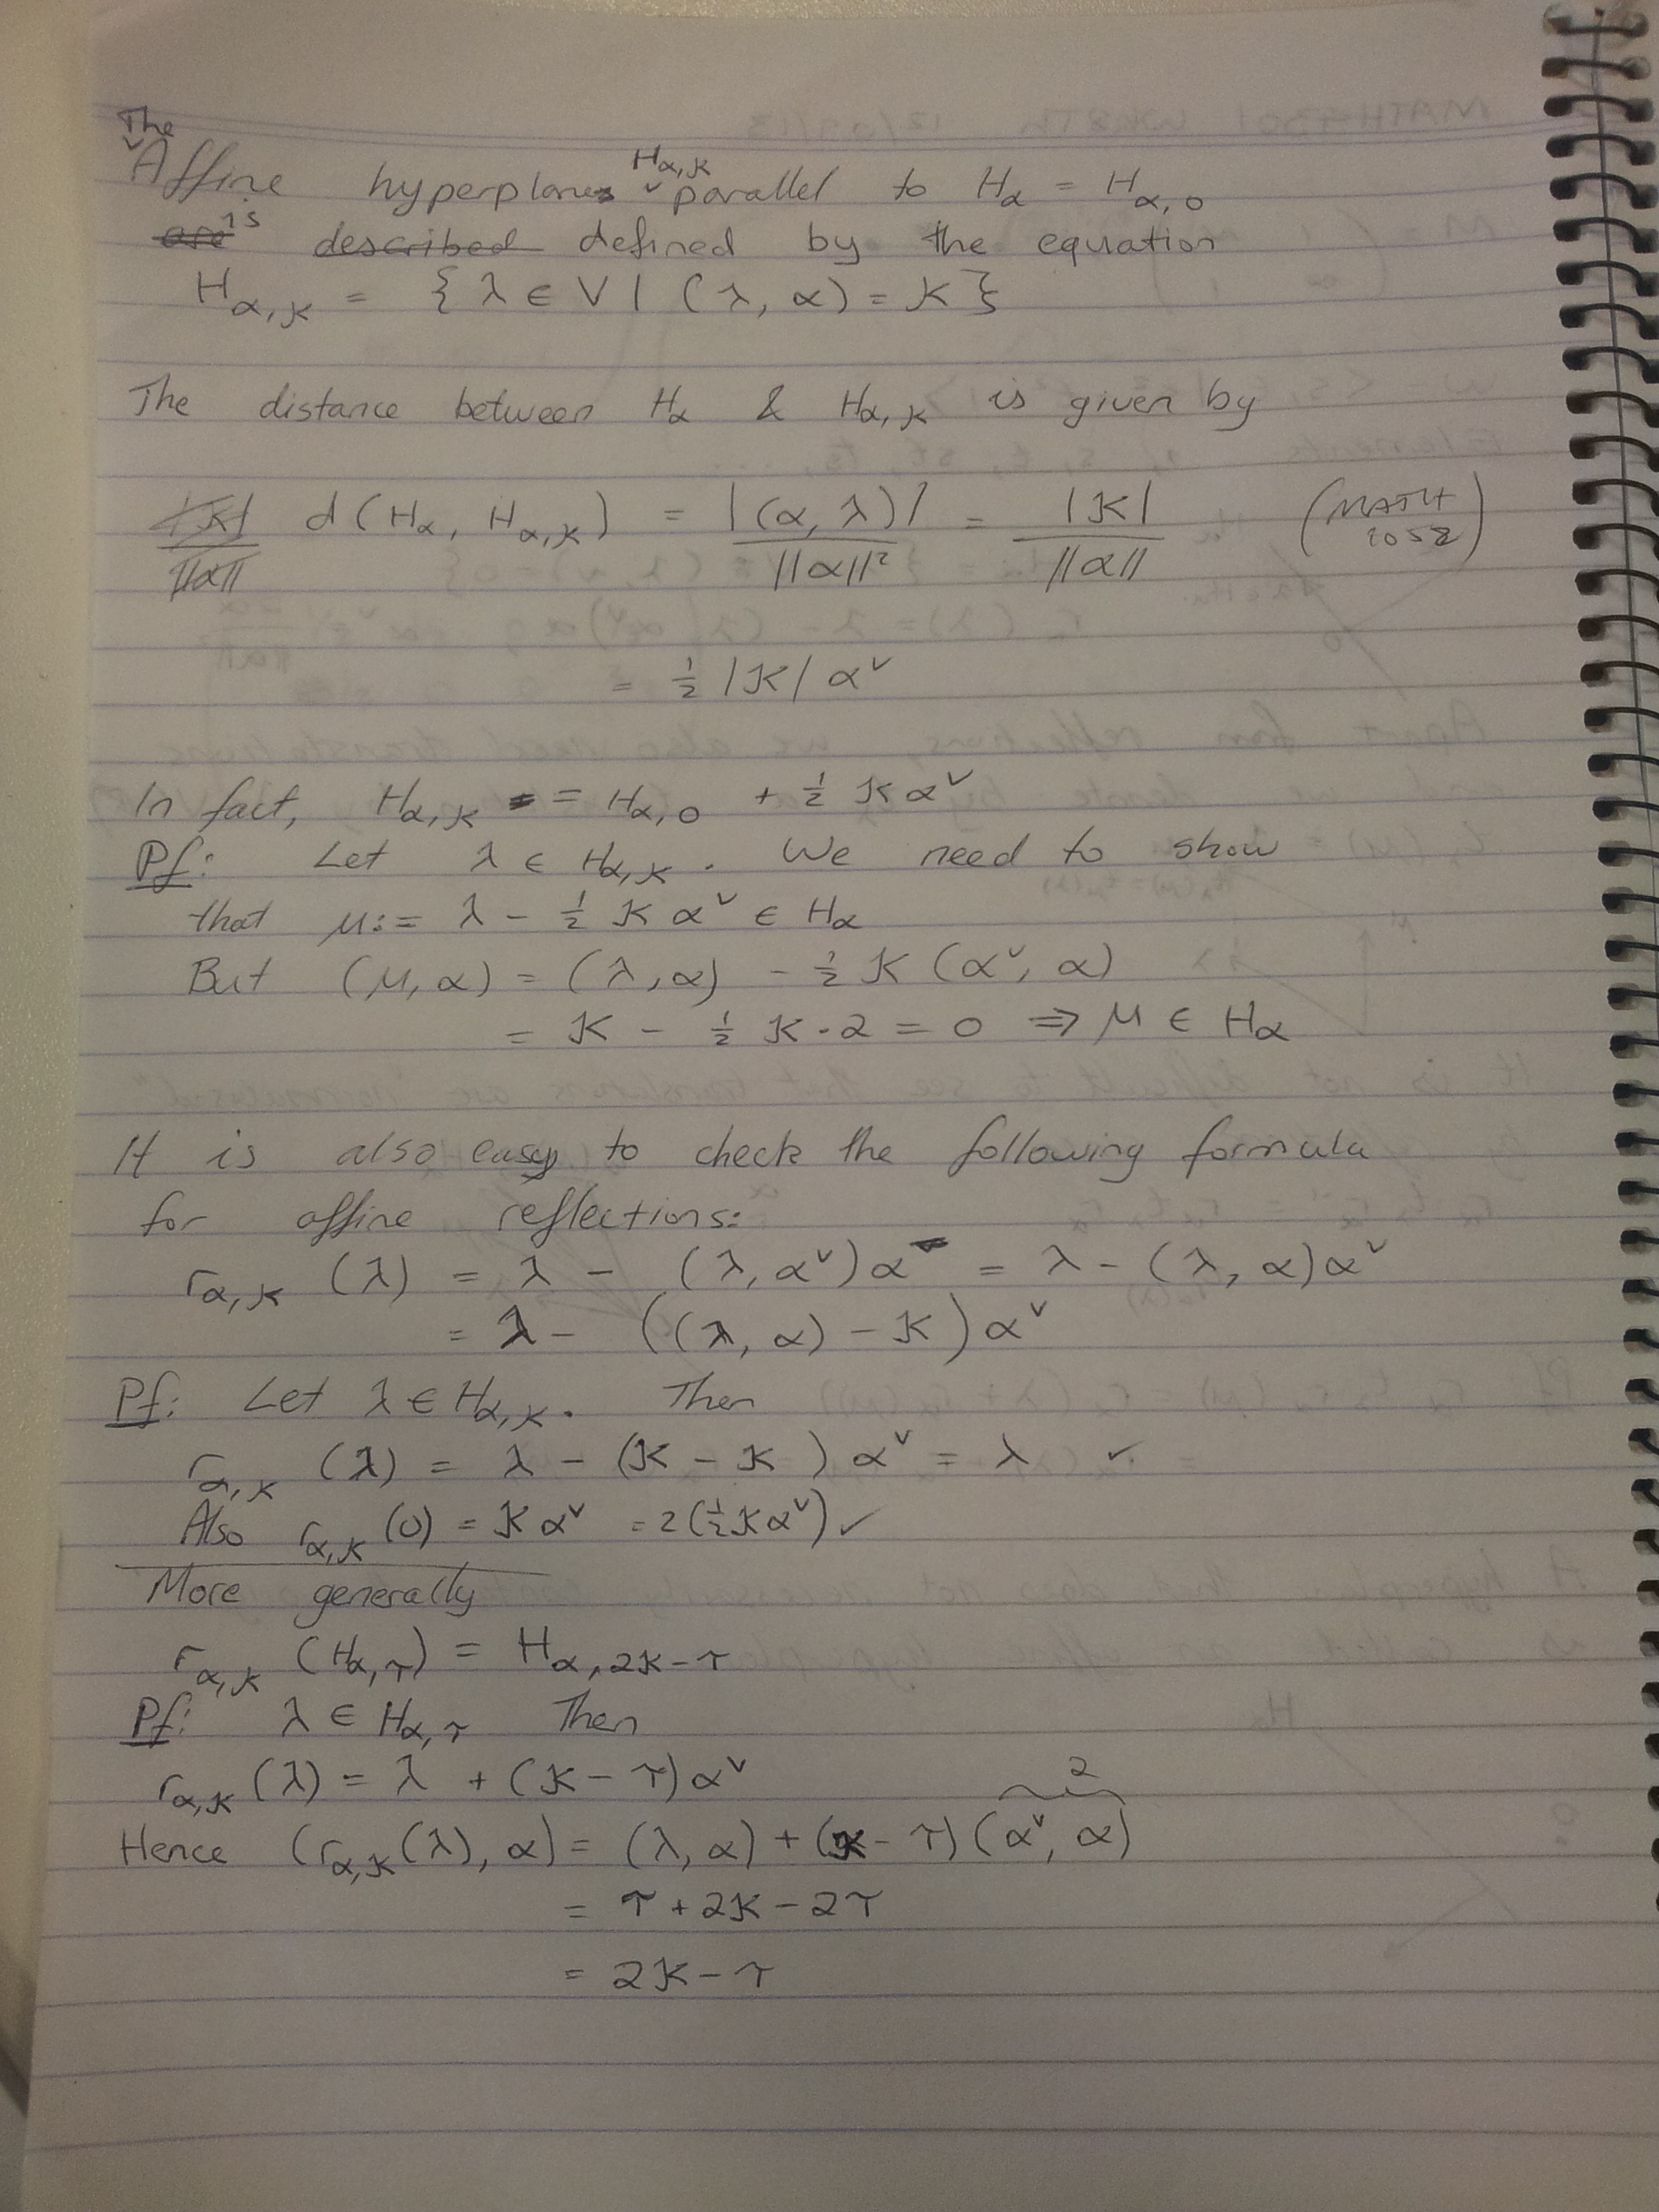 The
Affine hyperplanes H_{α,K} parallel to H_α = H_{α,0}
are is described defined by the equation
H_{α,K} = { λ ∈ V | (λ, α) = K }
The distance between H_α & H_{α,K} is given by
|K|/||α|| d(H_α, H_{α,K}) = |(α, λ)|/||α||² = |K|/||α|| (MATH 1052)
= ½ |K| α^∨
In fact, H_{α,K} = H_{α,0} + ½ K α^∨
Pf: Let λ ∈ H_{α,K}. We need to show
that μ := λ - ½ K α^∨ ∈ H_α
But (μ, α) = (λ, α) - ½ K (α^∨, α)
= K - ½ K·2 = 0 ⇒ μ ∈ H_α
It is also easy to check the following formula
for affine reflections:
r_{α,K} (λ) = λ - (λ, α^∨)α = λ - (λ, α)α^∨
= λ - ((λ, α) - K) α^∨
Pf: Let λ ∈ H_{α,K}. Then
r_{α,K} (λ) = λ - (K - K) α^∨ = λ ✓
Also r_{α,K} (0) = K α^∨ = 2(½ K α^∨) ✓
More generally
r_{α,K} (H_{α,τ}) = H_{α,2K-τ}
Pf: λ ∈ H_{α,τ} Then
r_{α,K} (λ) = λ + (K - τ) α^∨
2
Hence (r_{α,K} (λ), α) = (λ, α) + (K - τ) (α^∨, α)
= τ + 2K - 2τ
= 2K - τ